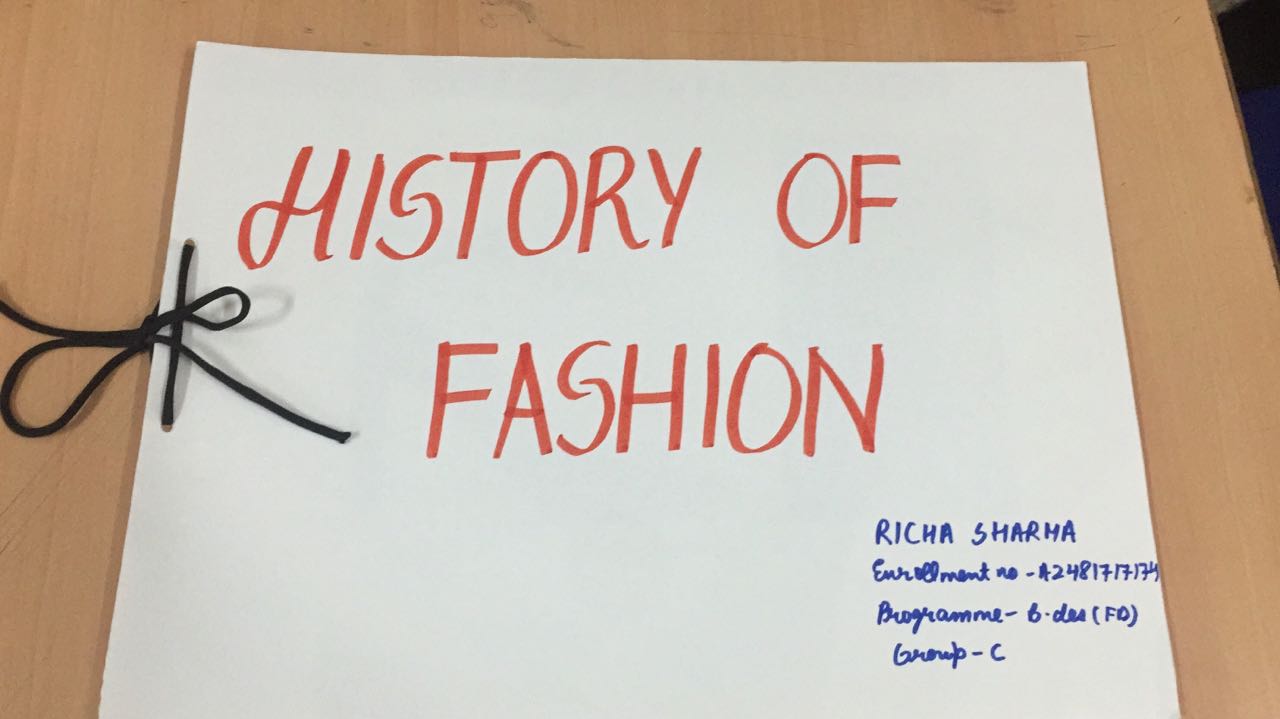 HISTORY OF
FASHION
RICHA SHARMA
Enrollment no - A2481717174
Programme - b.des (FD)
Group - C